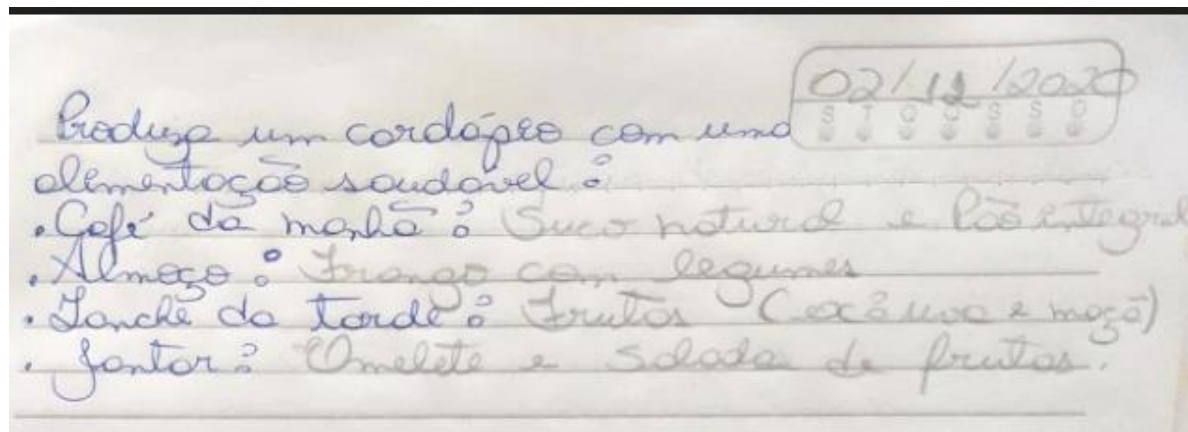 02/12/2020
S T Q Q S S D
Produza um cardápio com uma
alimentação saudável:
. Café da manhã: Suco natural e Pão integral
. Almoço: Frango com legumes
. Lanche da tarde: Frutas (exê uva e maçã)
. Jantar: Omelete e Salada de frutas.